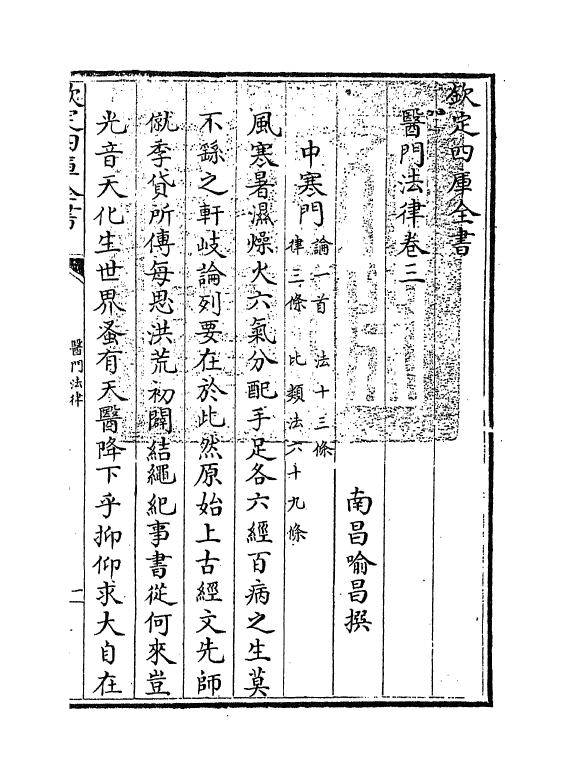 欽定四庫全書
醫門法律卷三
南昌喻昌撰
中寒門 論一首 法十三條
律三條 比類法六十九條
風寒暑濕燥火六氣分配手足各六經百病之生莫
不繇之軒岐論列要在於此然原始上古經文先師
僦季貸所傳每思洪荒初闢結繩紀事書從何來豈
光音天化生世界蚤有天醫降下乎抑仰求大自在
欽定四庫全書
醫門法律
一